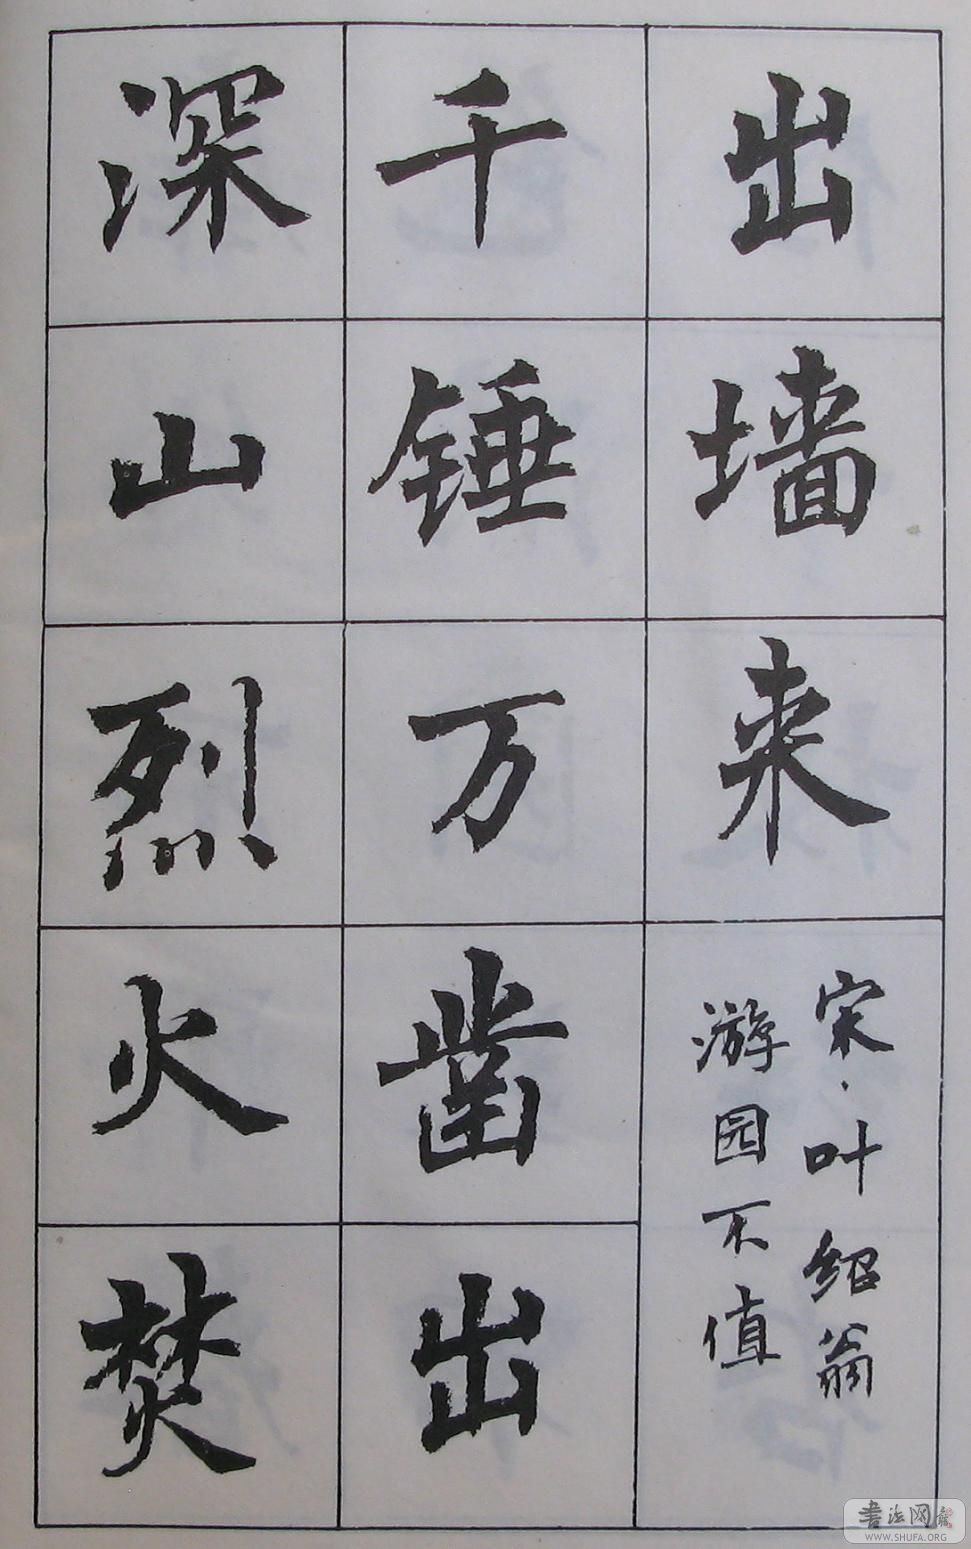 出墙来
宋·叶绍翁
游园不值
千锤万凿出
深山烈火焚
书法网
WWW.SHUFA.ORG